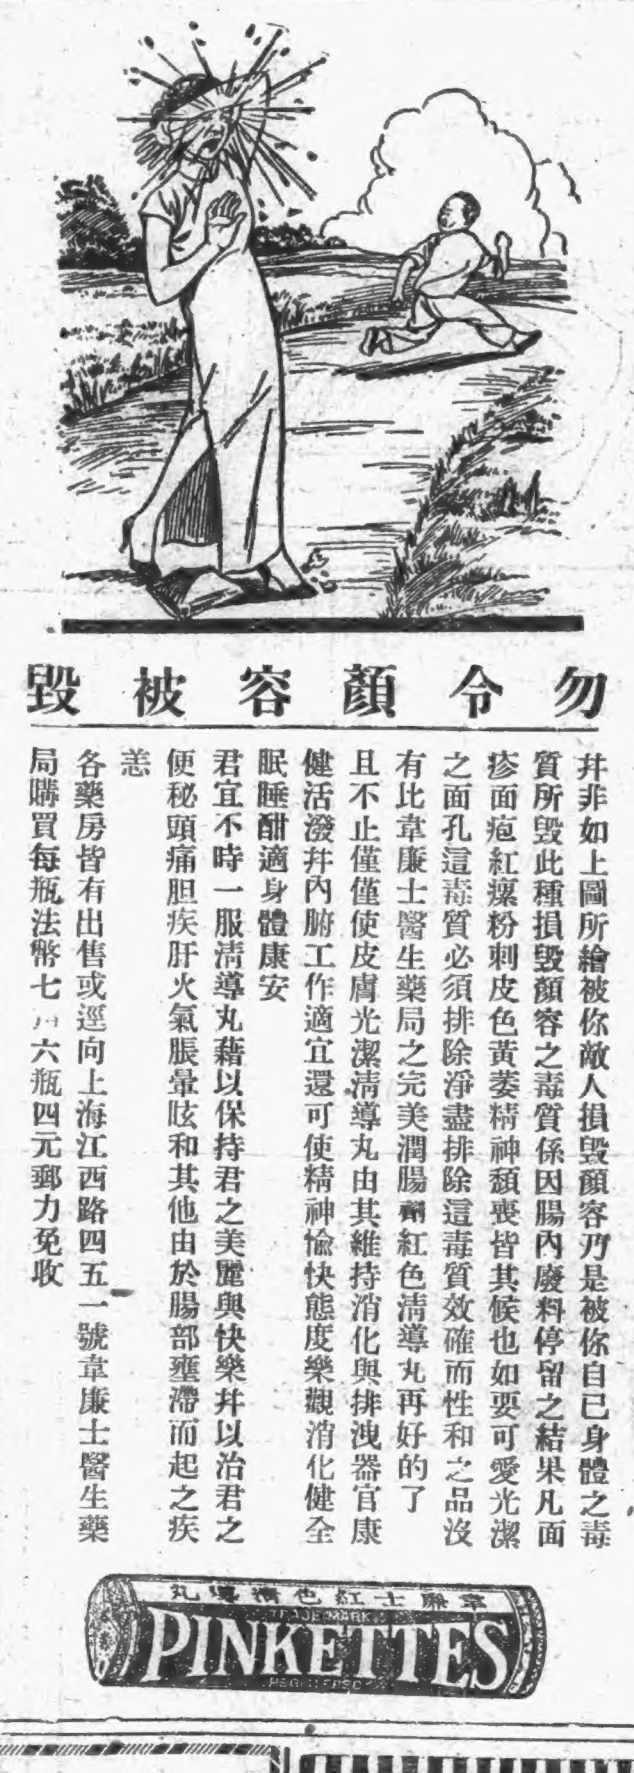 勿令顏容被毀
幷非如上圖所繪被你敵人損毀顏容乃是被你自已身體之毒
質所毀此種損毀顏容之毒質係因腸內廢料停留之結果凡面
疹面疱紅瘰粉刺皮色黃萎精神頹喪皆其候也如要可愛光潔
之面孔這毒質必須排除淨盡排除這毒質效確而性和之品沒
有比韋廉士醫生藥局之完美潤腸劑紅色淸導丸再好的了
且不止僅僅使皮膚光潔淸導丸由其維持消化與排洩器官康
健活潑幷內腑工作適宜還可使精神愉快態度樂觀消化健全
眠睡酣適身體康安
君宜不時一服淸導丸藉以保持君之美麗與快樂幷以治君之
便秘頭痛胆疾肝火氣脹暈眩和其他由於腸部壅滯而起之疾
恙
各藥房皆有出售或逕向上海江西路四五一號韋廉士醫生藥
局購買每瓶法幣七 六瓶四元郵力免收
韋廉士紅色淸導丸
TRADE MARK
PINKETTES
REGISTERED